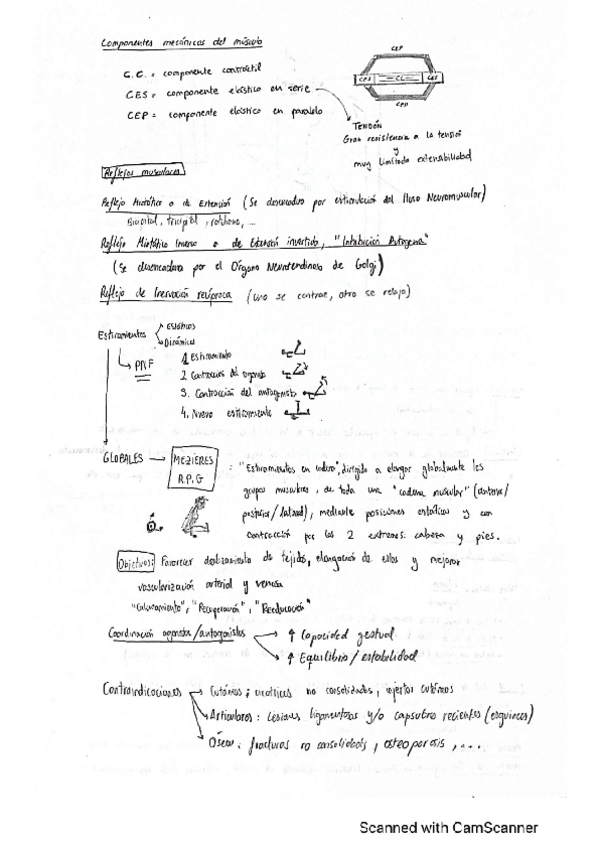 Componentes mecánicos del músculo
C.C. = componente contráctil
CES = componente elástico en serie
CEP = componente elástico en paralelo
CEP
CES CC CES
CEP
TENDÓN
Gran resistencia a la tensión
y
muy limitada extensibilidad
Reflejos musculares
Reflejo Miotático o de Extensión (Se desencadena por estimulación del Huso Neuromuscular)
Bicipital, tricipital, rotuliano, ...
Reflejo Miotático Inverso o de Extensión invertido, "Inhibición Autógena"
(Se desencadena por el Órgano Neurotendinoso de Golgi)
Reflejo de Inervación recíproca (uno se contrae, otro se relaja)
Estiramientos
Estáticos
Dinámicos
PNF
1. Estiramiento
2. Contracción del agonista
3. Contracción del antagonista
4. Nuevo estiramiento
GLOBALES → MEZIERES
R.P.G
: "Estiramientos en cadena", dirigido a elongar globalmente los
grupos musculares, de toda una "cadena muscular" (anterior/
posterior/lateral), mediante posiciones estáticas y con
contracción por los 2 extremos: cabeza y pies.
Objetivos: Favorecer deslizamiento de tejidos, elongación de ellos y mejorar
vascularización arterial y venosa
"Calentamiento", "Recuperación", "Reeducación"
Coordinación agonistas/antagonistas
↑ Capacidad gestual
↑ Equilibrio / estabilidad
Contraindicaciones
Cutáneas: cicatrices no consolidadas, injertos cutáneos
Articulares: Lesiones ligamentosas y/o capsulares recientes (esguinces)
Óseas: fracturas no consolidadas, osteoporosis, ...
Scanned with CamScanner